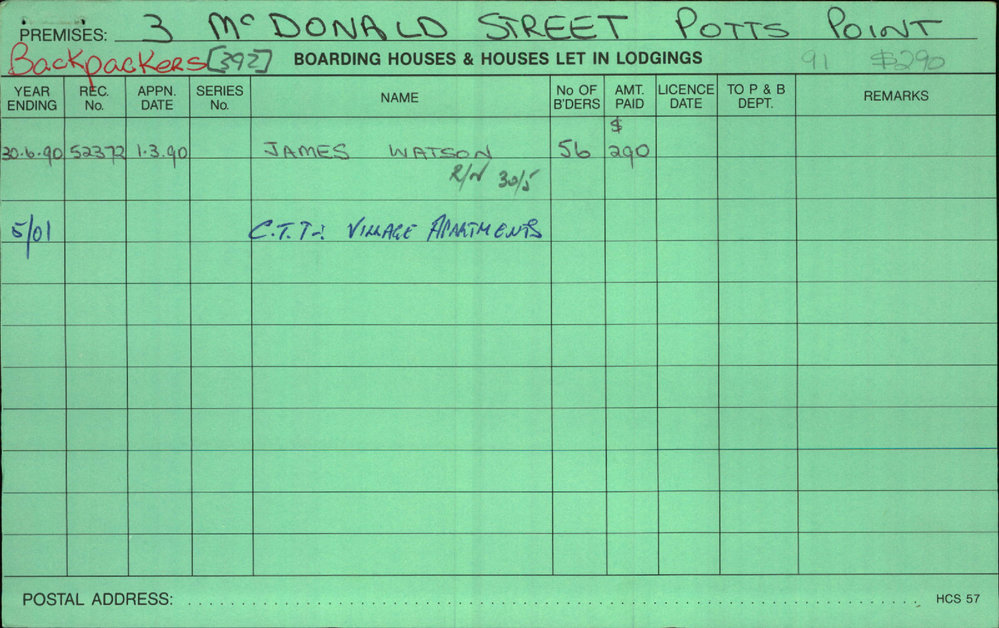 PREMISES: 3 McDONALD STREET POTTS POINT
Backpackers [392] BOARDING HOUSES & HOUSES LET IN LODGINGS 91 $290
YEAR ENDING REC. No. APPN. DATE SERIES No. NAME No OF B'DERS AMT. PAID LICENCE DATE TO P & B DEPT. REMARKS
$
30.6.90 52372 1.3.90 JAMES WATSON 56 290
R/N 30/5
5/01 C.T.T.: VILLAGE APARTMENTS
POSTAL ADDRESS: HCS 57